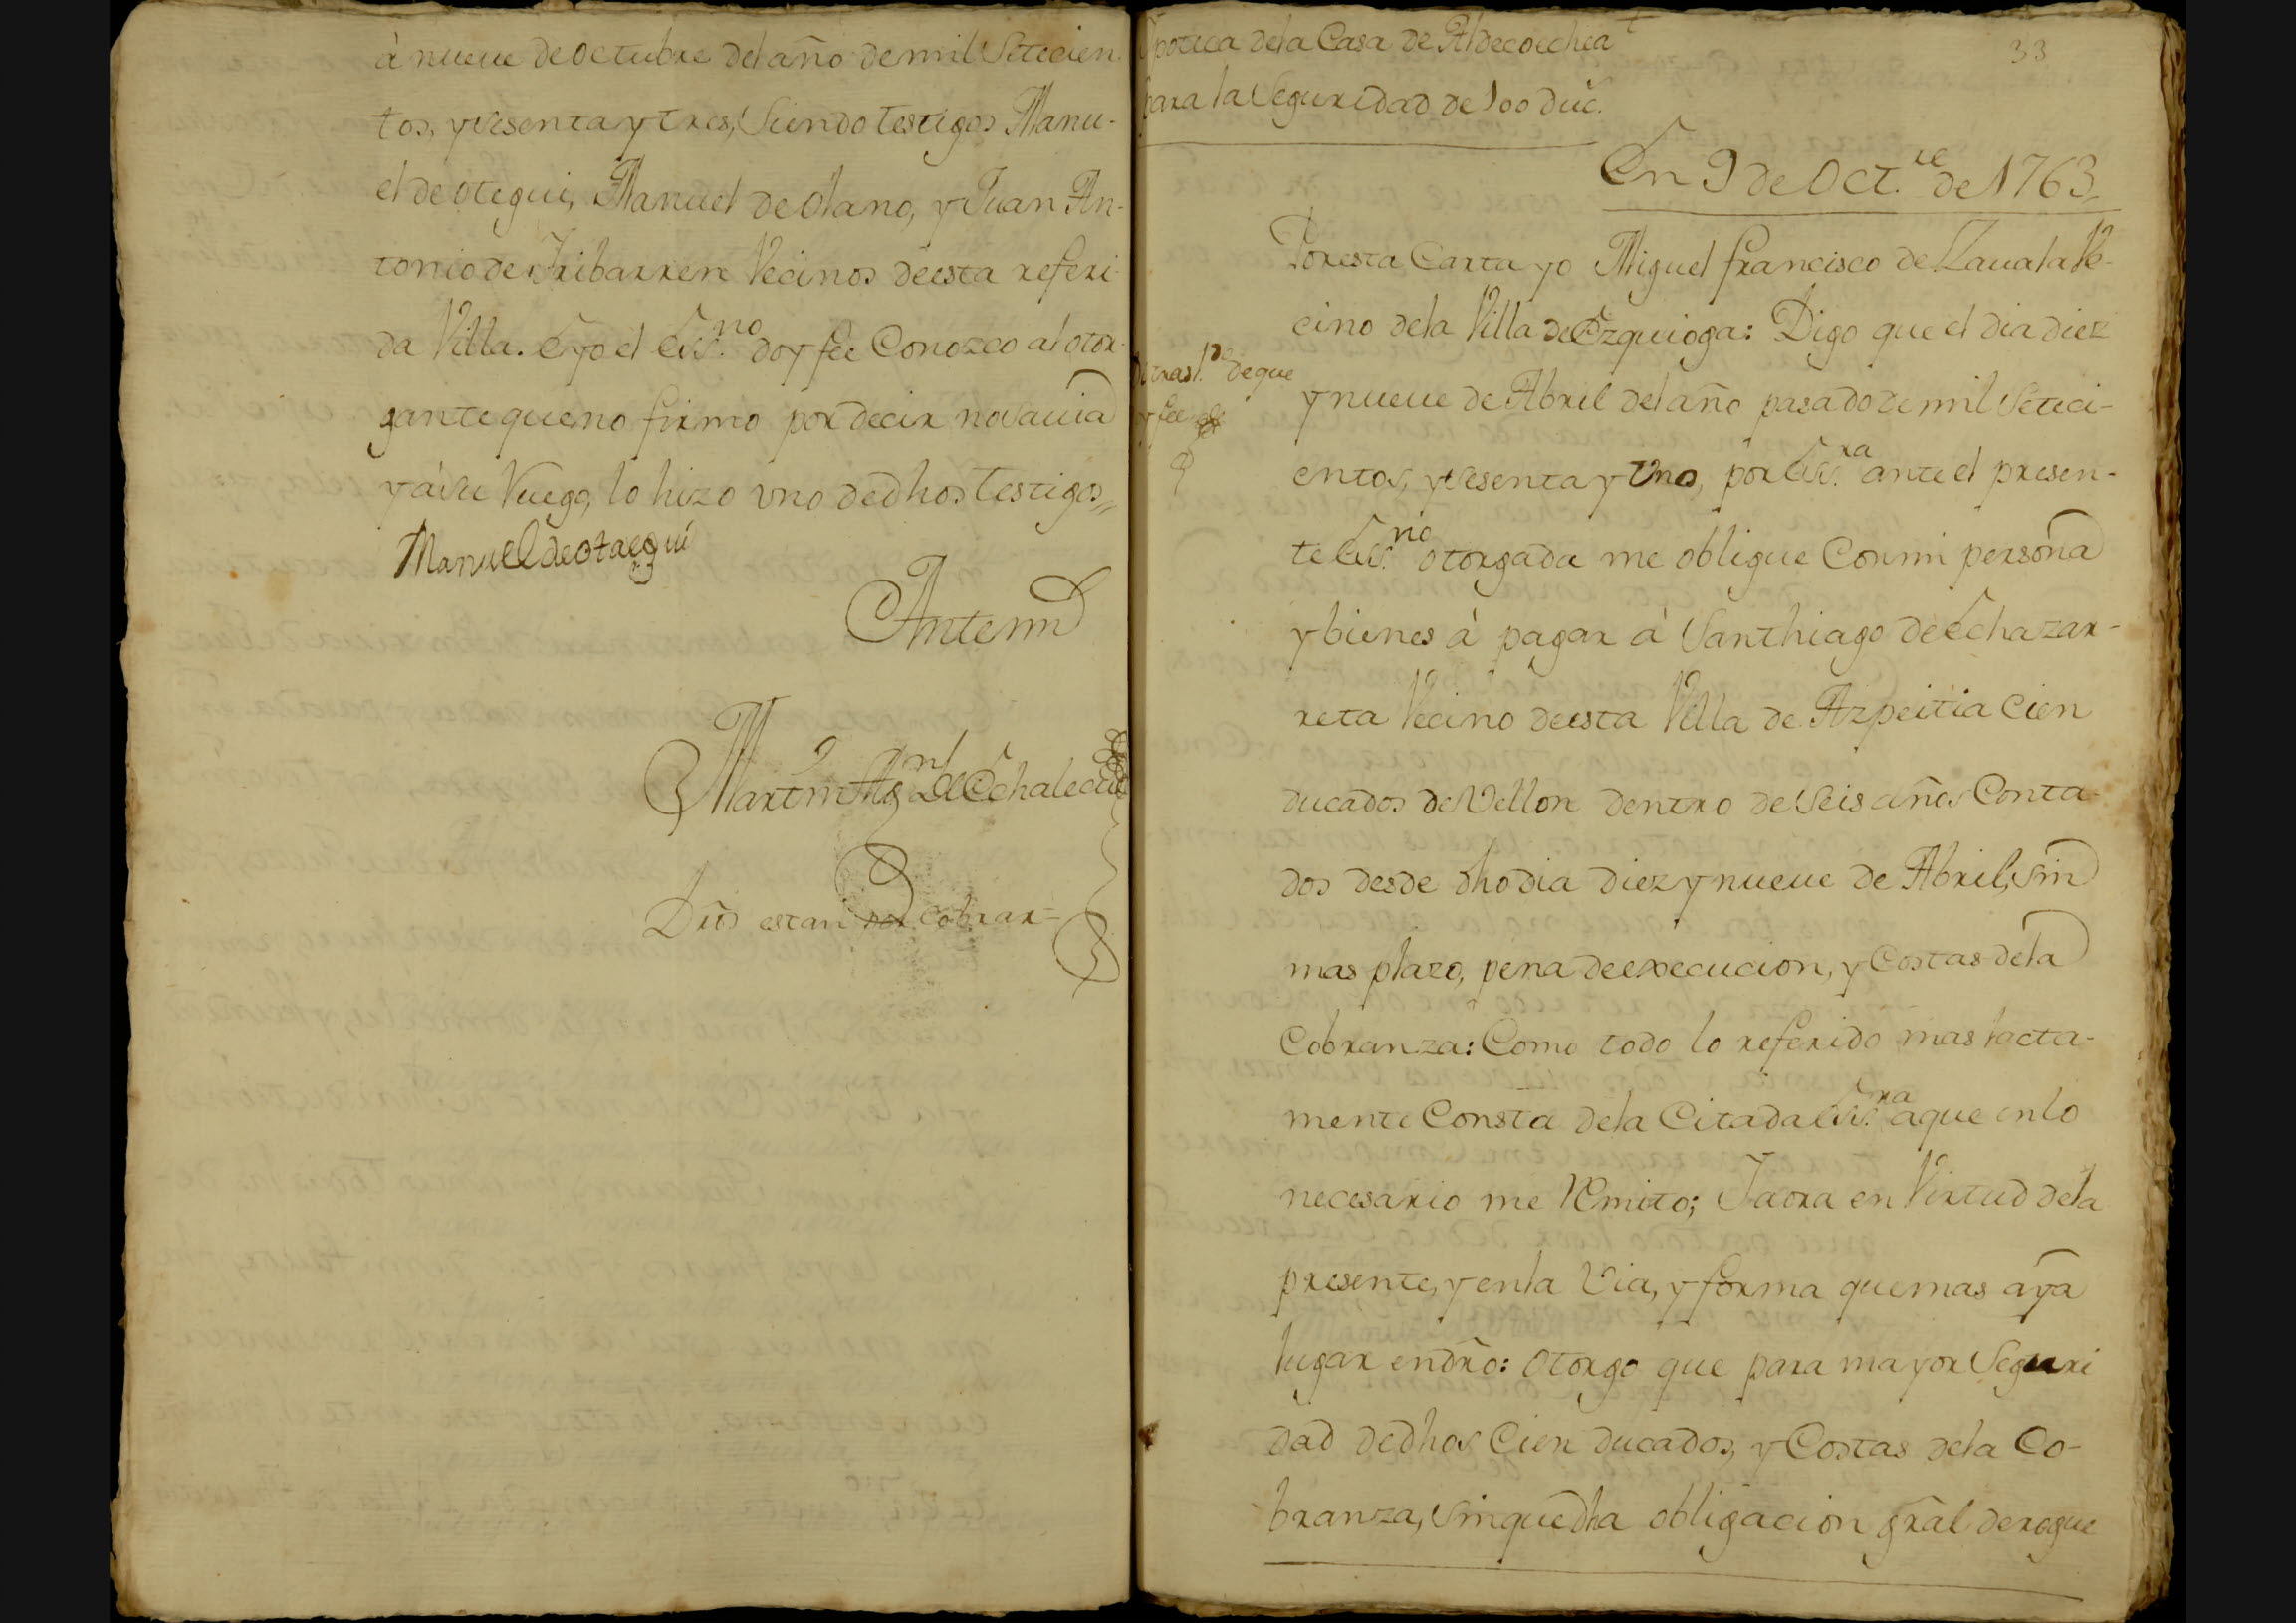 à nueue de octubre del año de mil Setecien
tos, y sesenta y tres, Siendo testigos Manu-
el de otegui, Manuel de olano, y Juan An-
tonio de Iribarren Vecinos de esta referi
da Villa. E yo el Ess.no doy fee Conozco al otor
gante que no firmo por decir no Sauia
y a su Ruego, lo hizo vno de dhos testigos
Manuel de otaegui
Antemi
Martin Ag.n de Echalecu
Dros estan por cobrar =
Ypoteca de la Casa de Aldecoechea
para la Seguridad de 100 duc.
33
En 9 de Oct.re de 1763
Por esta Carta yo Miguel francisco de Zauala Ve-
cino de la Villa de Ezquioga: Digo que el dia diez
de que
y fee
y nueue de Abril del año pasado de mil Seteci-
entos, y sesenta y Vno, por Ess.ra ante el presen-
te Ess.no otorgada me obligue Con mi persona
y bienes à pagar à Santhiago de Echazar-
reta Vecino de esta Villa de Azpeitia Cien
ducados de Vellon dentro de Seis años Conta-
dos desde dho dia diez y nueue de Abril, Sin
mas plazo, pena de execucion, y Costas de la
Cobranza: Como todo lo referido mas lacta-
mente Consta de la Citada Ess.ra a que en lo
necesario me Remito; I aora en Virtud de la
presente, y en la Via, y forma que mas aya
lugar en dro: otorgo que para mayor Seguri
dad de dhos Cien ducados, y Costas de la Co-
branza, Sin que dha obligacion gral derogue